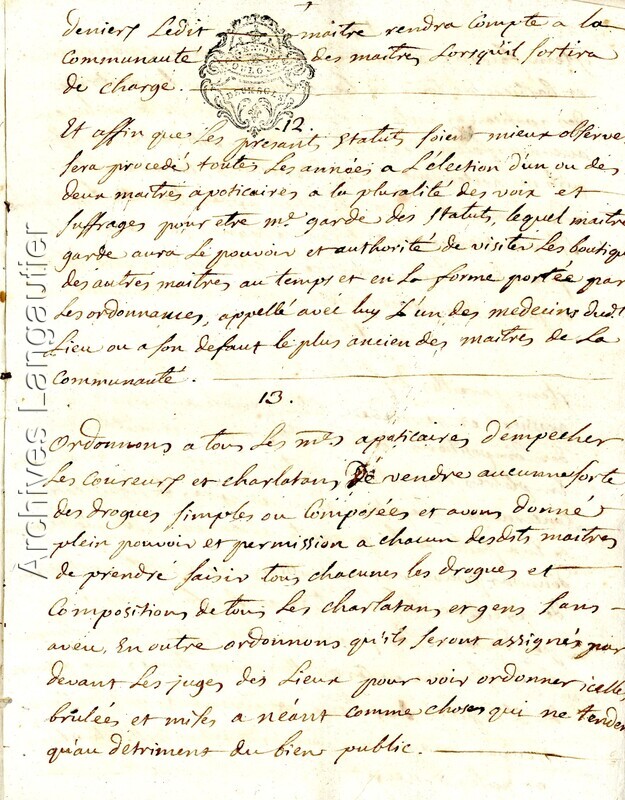 deniers Ledit maitre rendra Compte a la
Communauté des maitres Lorsqu'il sortira
de charge.
12.
Et affin que Les presants statuts soient mieux observe
sera procedé toutes Les années a L'election d'un ou des
deux maitres apoticaires a la pluralité des voix et
suffrages pour etre me. garde des statuts, lequel maitre
garde aura Le pouvoir et authorité de visiter Les boutiqu
des autres maitres au temps et en La forme portée par
Les ordonnances, appellé avec luy L'un des medecins dud.t
Lieu ou a son defaut le plus ancien des maitres de La
Communauté.
13.
Ordonnons a tous Les mes apoticaires d'empecher
Les Coureurs et charlatans de vendre aucunne sorte
des drogues simples ou Composées et avons donné
plein pouvoir et permission a chacun desdits maitres
de prendre saisir tous chacunes les drogues et
Compositions de tous Les charlatans et gens sans
aveu, En outre ordonnons qu'ils seront assignés par
devant Les juges des Lieux pour voir ordonner icelles
brulées et mises a néant comme choses qui ne tender
qu'au detriment du bien public.
Archives Langautier